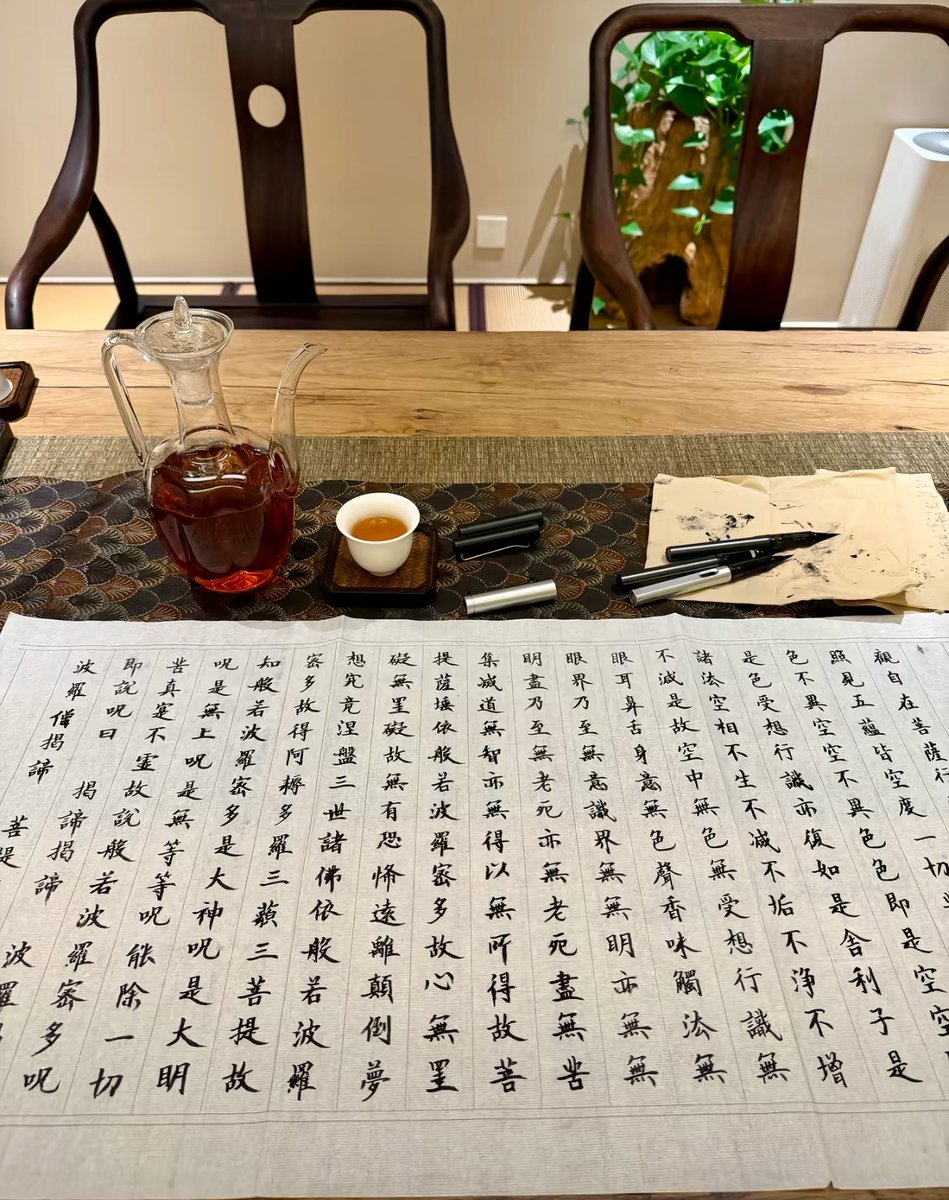 觀自在菩薩行
照見五蘊皆空度一切
色不異空空不異色色即是空空
是色受想行識亦復如是舍利子是
諸法空相不生不減不垢不淨不增
不減是故空中無色無受想行識無
眼耳鼻舌身意無色聲香味觸法無
眼界乃至無意識界無無明亦無無
明盡乃至無老死亦無老死盡無苦
集減道無智亦無得以無所得故菩
提薩埵依般若波羅蜜多故心無罣
礙無罣礙故無有恐怖遠離顛倒夢
想究竟涅盤三世諸佛依般若波羅
蜜多故得阿耨多羅三藐三菩提故
知般若波羅蜜多是大神呪是大明
呪是無上呪是無等等呪能除一切
苦真寔不虛故說般若波羅蜜多呪
即說呪曰 揭諦揭諦 波羅
波羅僧揭諦 菩提